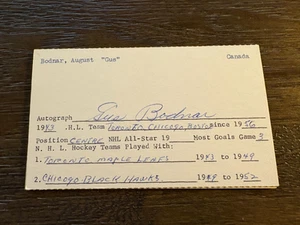 Bodnar, August "Gus" Canada
Autograph Gus Bodnar
1943 .H.L. Team TORONTO, CHICAGO, BOSTON since 1956
Position CENTRE NHL All-Star 19 Most Goals Game 3
N. H. L. Hockey Teams Played With:
1. TORONTO MAPLE LEAFS 1943 to 1949
2. CHICAGO BLACK HAWKS 1949 to 1952